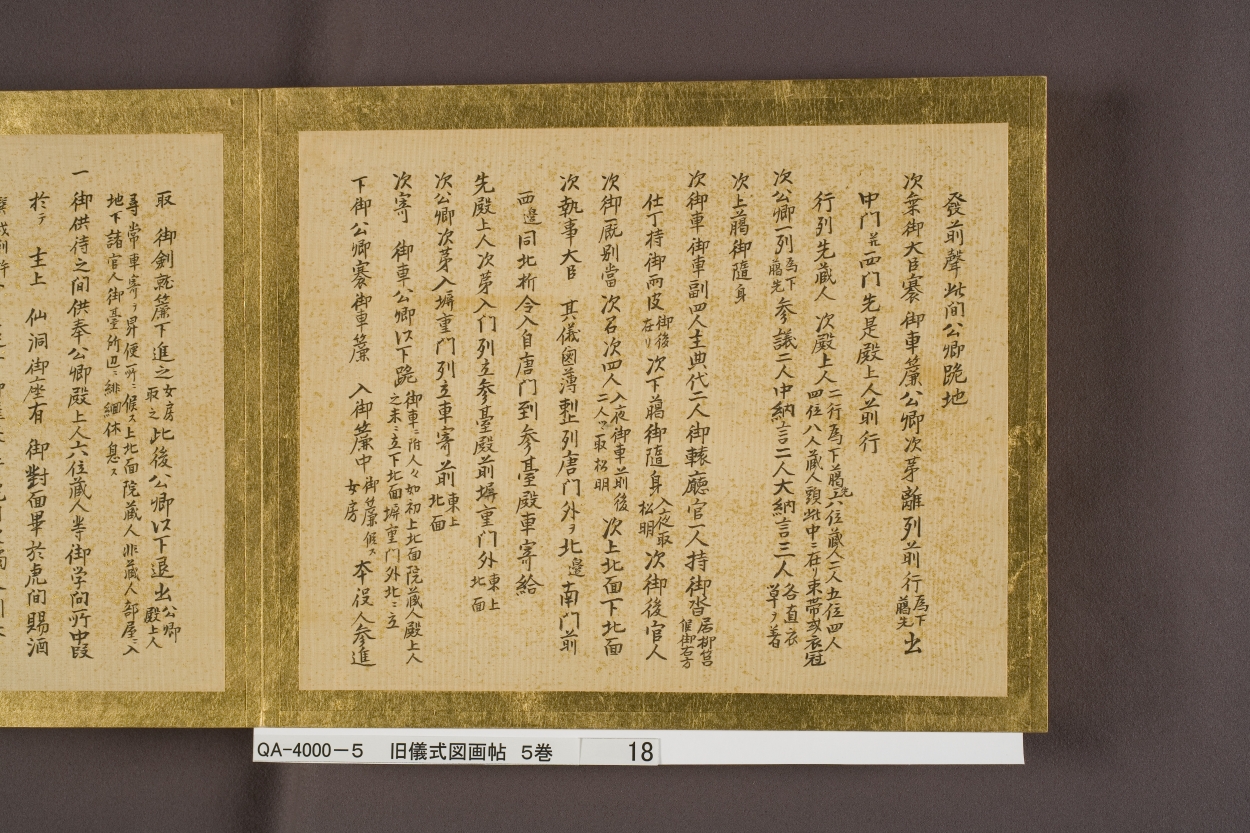 發前聲此間公卿跪地
次乗御大臣褰御車簾公卿次第離列前行為下﨟先出
中門并四門先是殿上人前行
行列先蔵人次殿上人二行為下﨟先六位蔵人二人五位四人四位八人蔵人頭此中ニ在リ束帯或衣冠
次公卿一列為下﨟先参議二人中納言二人大納言三人各直衣草ヲ着
次上﨟御随身
次御車御車副四人主典代二人御轅廳官一人持御沓居柳筥候御右方
仕丁持御雨皮御後在リ次下﨟御随身入夜取松明次御後官人
次御厩別當次召次四人入夜御車前後二人ツヽ取松明次上北面下北面
次執事大臣其儀鹵薄整列唐門外ヲ北邊南門前
西邊同北折令入自唐門到参臺殿車寄給
先殿上人次第入门列立参臺殿前塀重门外東上北面
次公卿次第入塀重门列立車寄前東上北面
次寄御車公卿以下跪御車ニ附人々如初上北面院蔵人殿上人之末ニ立下北面塀重门外北ニ立
下御公卿褰御車簾入御簾中御簾候ス女房本役人参進
取御剣就簾下進之女房取之此後公卿以下退出公卿殿上人
尋常車寄ヲ昇便所ニ候ス上北面院蔵人非蔵人部屋ニ入
地下諸官人御臺所辺ニ緋縕休息ス
一御供侍之間供奉公卿殿上人六位蔵人等御学问所中段
於テ主上仙洞御座有御對面畢於虎间賜酒
QA-4000-5 旧儀式図画帖 5巻 18